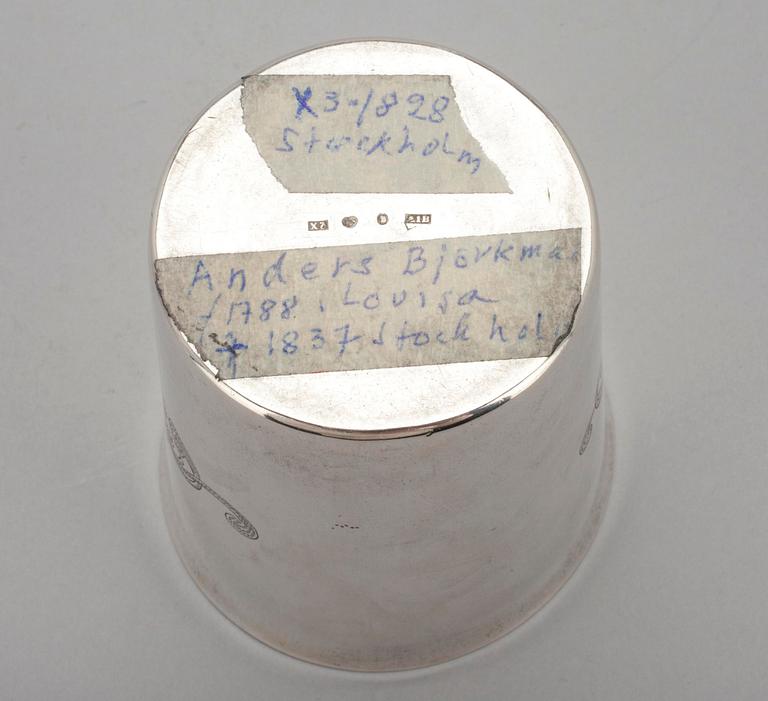 X3-1828
Stockholm
X7 B
Anders Björkma
f 1788. Lovisa
† 1837 Stockhol